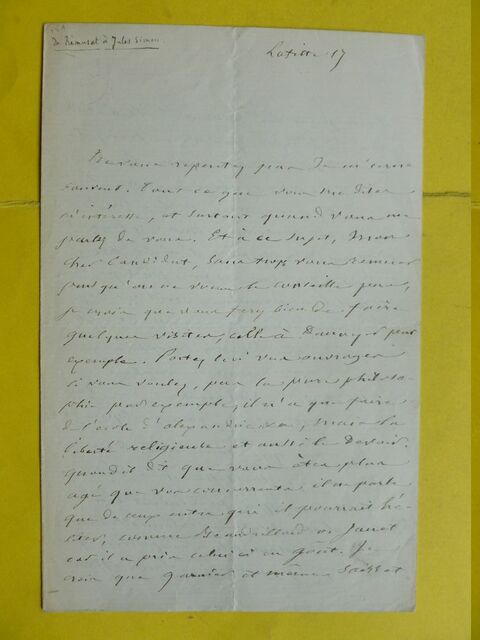 De Rémusat à Jules Simon
Lafitte 17
Ne vous repentez pas de m'écrire
souvent. Tout ce que vous me dites
m'intéresse, et surtout quand vous me
parlez de vous. Et à ce sujet, mon
cher Candidat, sans trop vous remuer
puisqu'on ne vous le conseille pas,
je crois que vous ferez bien de faire
quelques visites, celle à par
exemple. Portez lui vos ouvrages
si vous voulez, pas la pure philoso-
phie par exemple, il n'a que faire
de l'école d'alexandrie, mais la
liberté religieuse et aussi le Devoir.
quand il dit que vous êtes plus
agé que vos concurrents il ne parle
que de ceux entre qui il pourrait hé-
siter, comme Baudrillard ou Janet
car il a pris celui ci en goût. Je
crois que Garnier et même Saisset